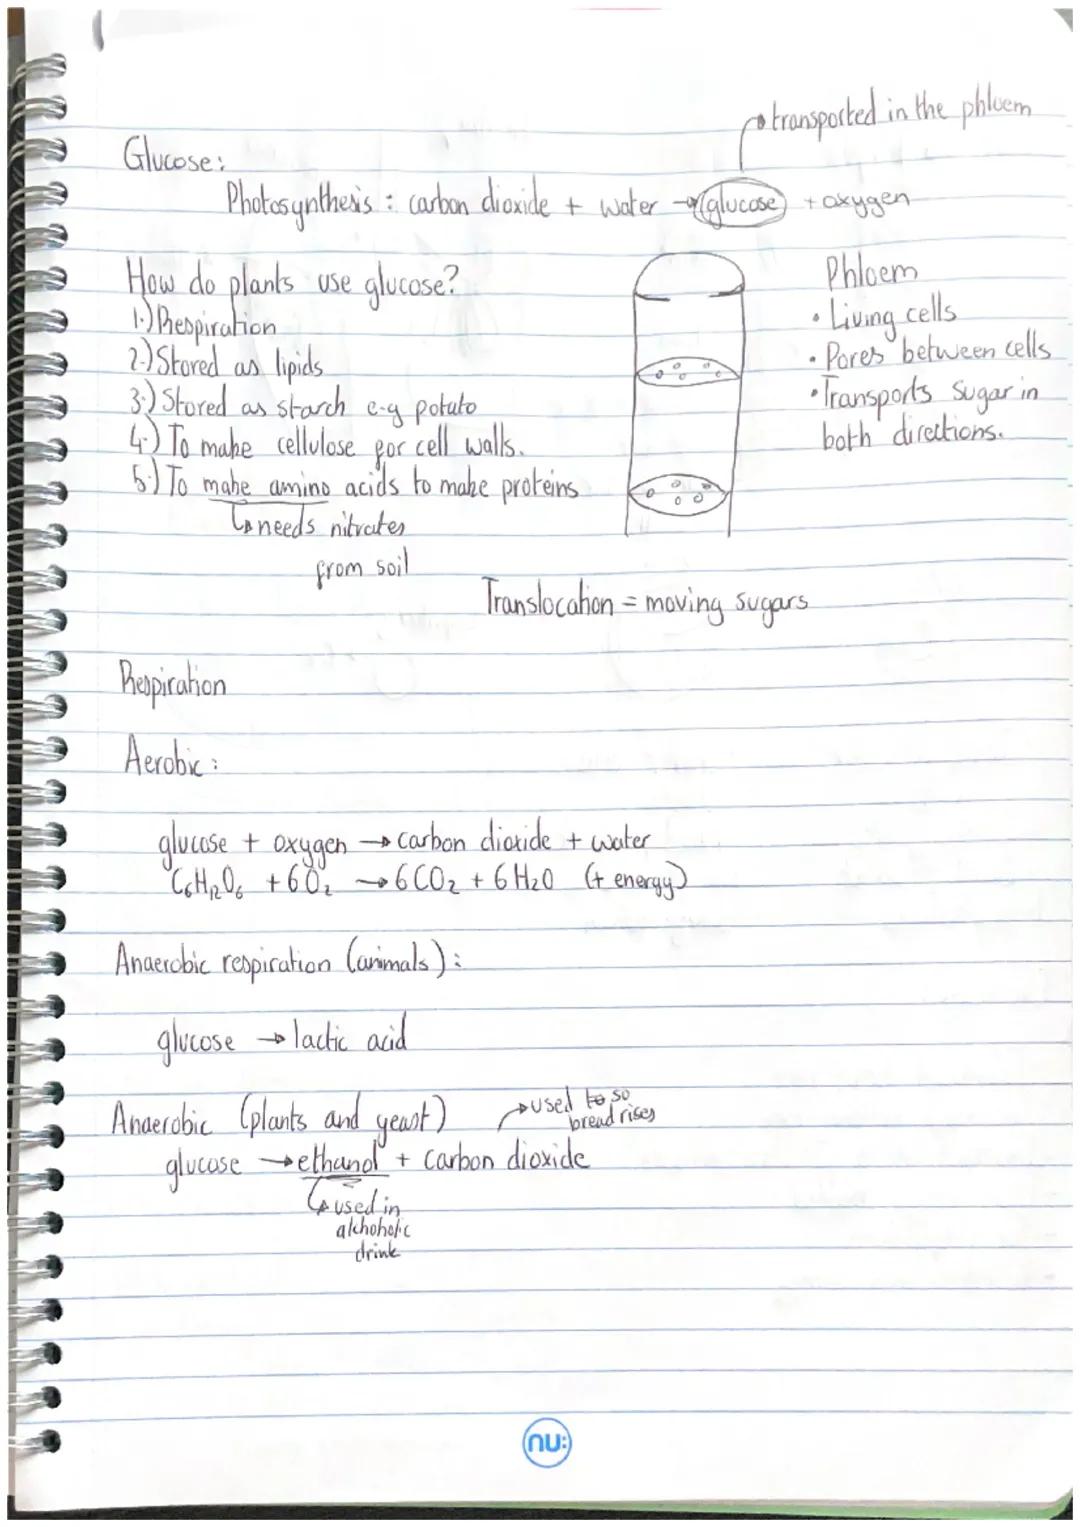 transported in the phloem
Glucose:
Photosynthesis : carbon dioxide + water → glucose + oxygen
How do plants use glucose?
1.) Respiration
2.) Stored as lipids
3.) Stored as starch e.g potato
4.) To make cellulose for cell walls.
5.) To make amino acids to make proteins
↳ needs nitrates
from soil
Phloem
• Living cells
• Pores between cells
• Transports sugar in
both directions.
Translocation = moving sugars
Respiration
Aerobic :
glucose + oxygen → carbon dioxide + water
C6H12O6 + 6O2 → 6CO2 + 6H2O (+ energy)
Anaerobic respiration (animals) :
glucose → lactic acid
Anaerobic (plants and yeast)
→ used to so
bread rises
glucose → ethanol + carbon dioxide
↳ used in
alchoholic
drink
nu: